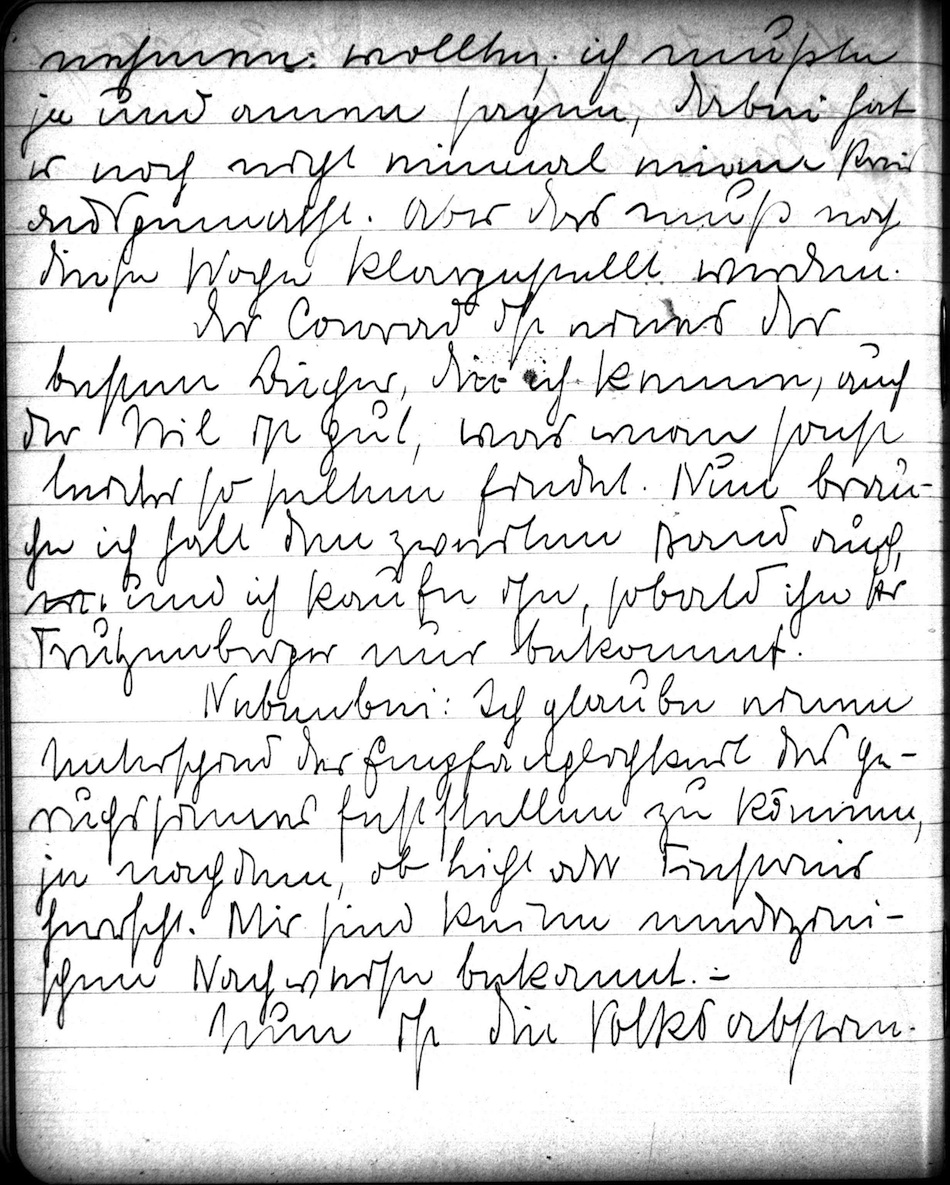 nehmen wollten; ich müßte
ja und amen sagen, dabei hat
er noch nicht einmal
Aber das muß noch
diese Woche klargestellt werden.
Der Conrad ist eines der
besten Bücher, die ich kenne, auch
der Stil ist gut, was man sonst
leider so selten findet. Nun brau-
che ich halt den zweiten Band auch,
und ich kaufe ihn, sobald ihn der
nur bekommt.
Nebenbei: Ich glaube einen
Unterschied der Empfänglichkeit des Ge-
ruchssinnes feststellen zu können,
je nachdem, ob Licht oder Finsternis
herrscht. Mir sind keine medizini-
schen Nachweise bekannt. –
Nun ist die Volksabstim-